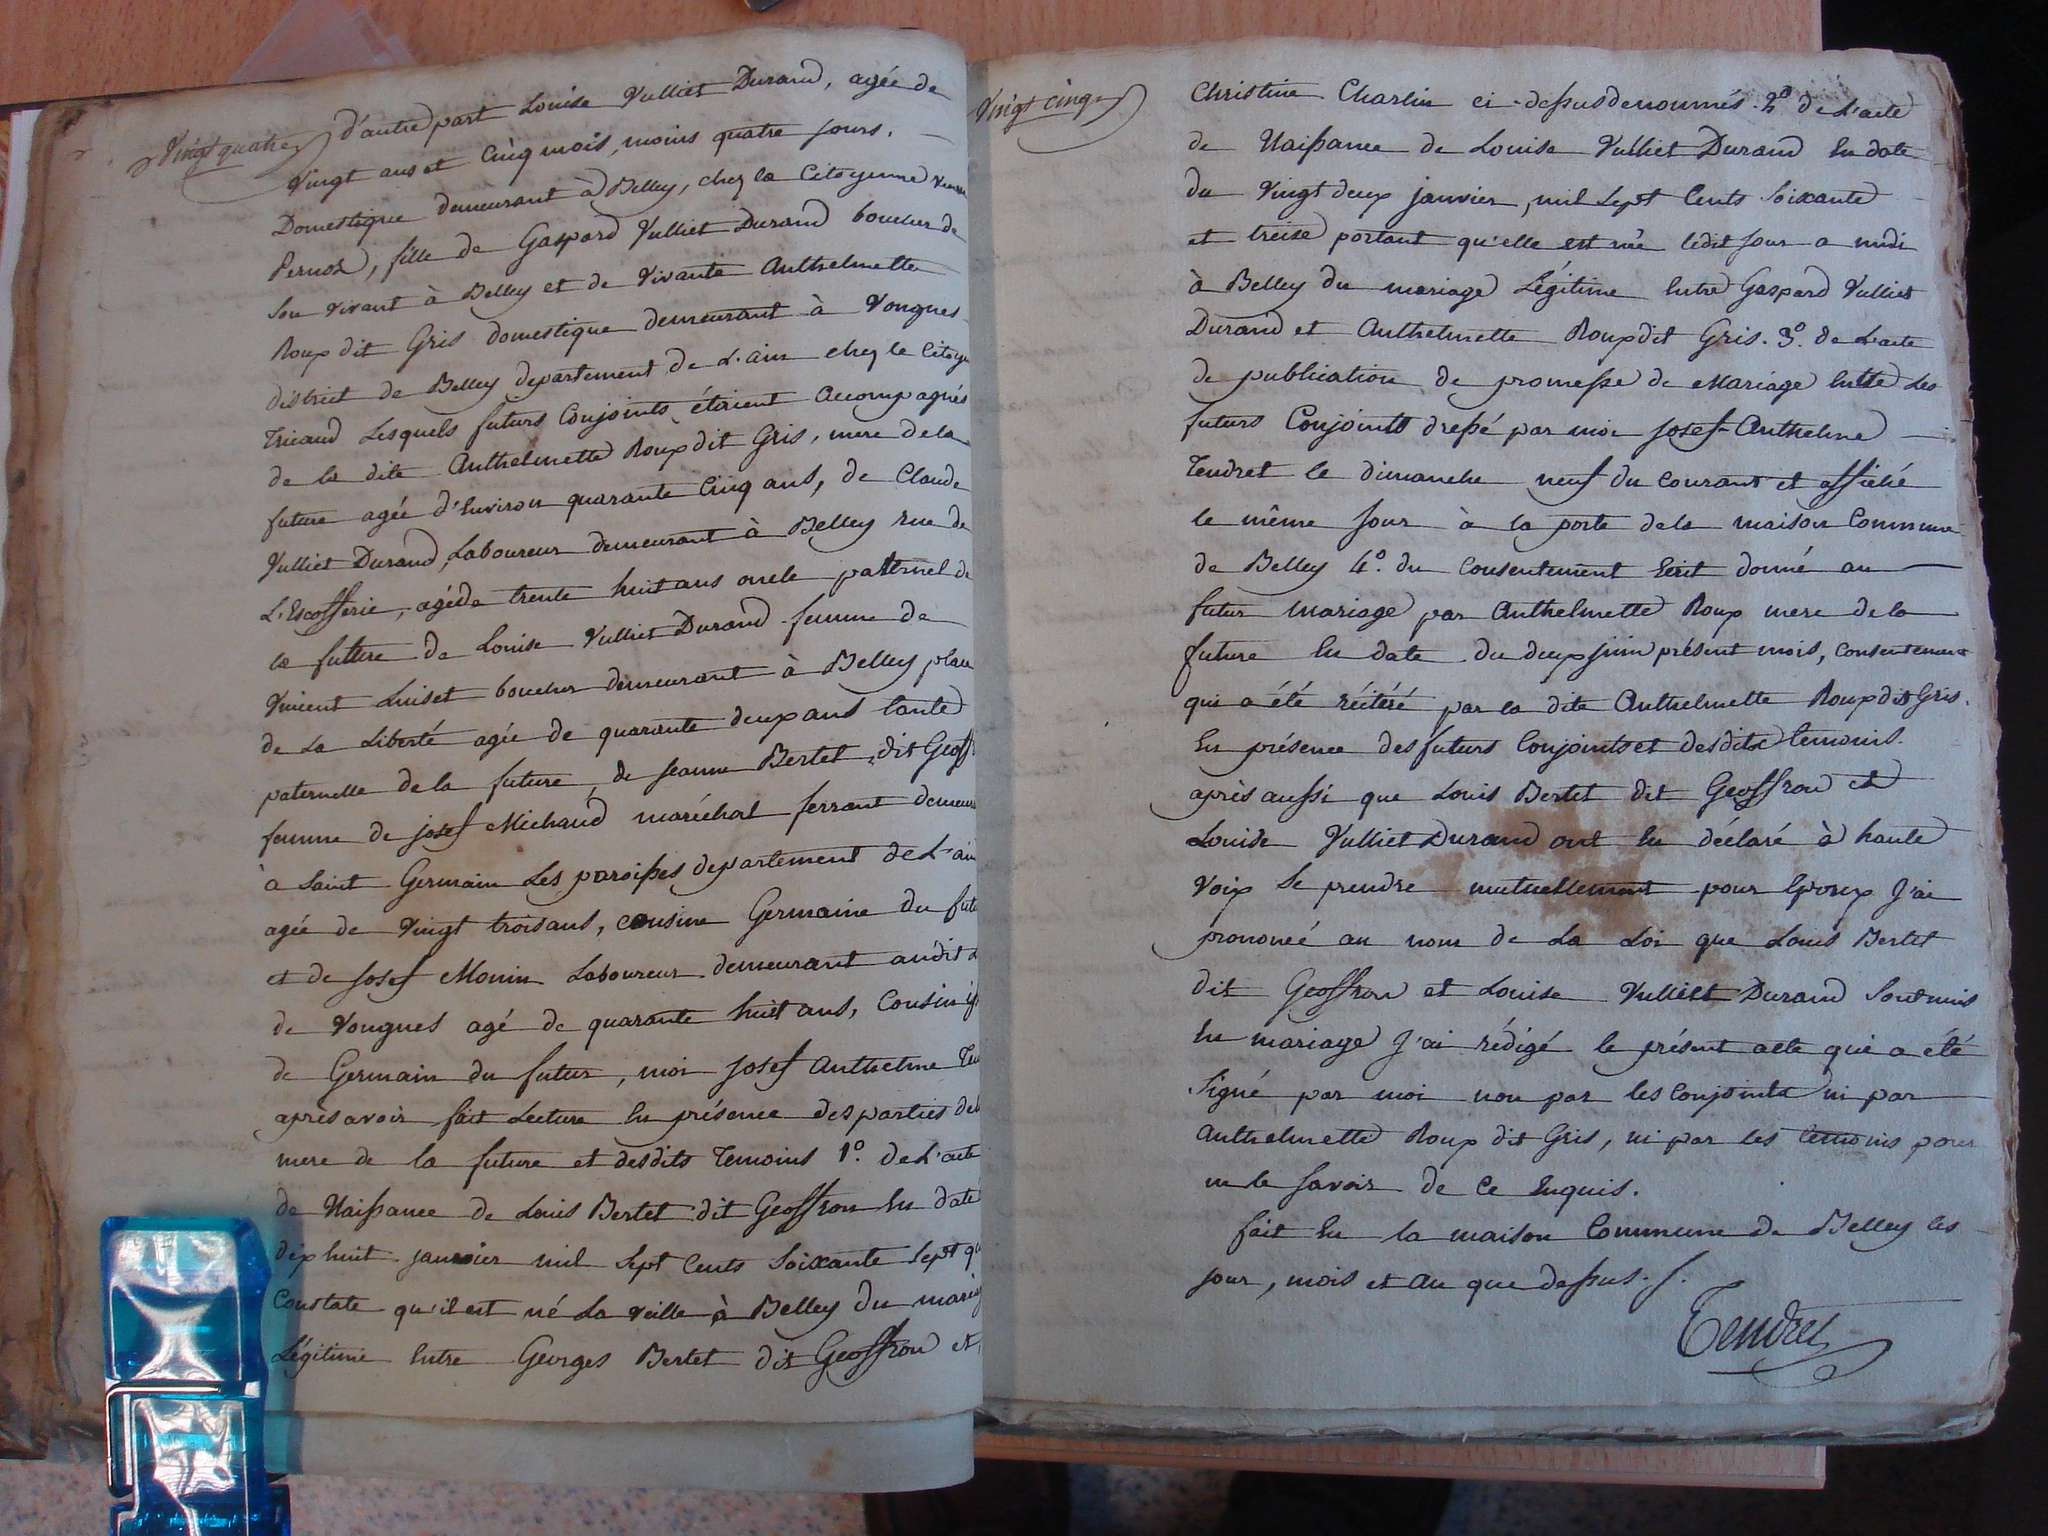 Vingt quatre
d'autre part Louise Vulliet Durand, agée de
Vingt ans et Cinq mois, moins quatre jours.
Domestique demeurant à Belley, chez la Citoyenne veuve
Pernod, fille de Gaspard Vulliet Durand boucher de
son vivant à Belley et de vivante Anthelmette
Roup dit Gris domestique demeurant à Vongnes
district de Belley departement de L'ain chez le Citoye
Tricaud Lesquels futurs Conjoints étoient accompagnés
de la dite Anthelmette Roup dit Gris, mere de la
future agée d'Environ quarante Cinq ans, de Claude
Vulliet Durand, Laboureur demeurant à Belley rue de
L'Escofferie, agé de trente huit ans oncle paternel de
la future de Louise Vulliet Durand femme de
Vincent Luiset boucher demeurant à Belley place
de La Liberté agée de quarante deux ans tante
paternelle de la future, de Jeanne Bertet dit Geoff
femme de josef Michaud maréchal ferrant demeur
à Saint Germain Les paroisses departement de L'ain
agée de Vingt trois ans, cousine Germaine du futu
et de Josef Monin Laboureur demeurant audit
de Vongnes agé de quarante huit ans, Cousin is
de Germain du futur, moi Josef Anthelme Ten
après avoir fait Lecture En présence des parties de
mere de la future et desdits Temoins 1º. de L'acte
de Naissance de Louis Bertet dit Geoffron En date
dix huit janvier mil Sept Cents Soixante Sept qu
Constate qu'il est né La veille à Belley du mariag
Légitime Entre Georges Bertet dit Geoffron et
Vingt cinq
Christine Charlin ci-dessus denommés. 2º de L'acte
de Naissance de Louise Vulliet Durand En date
du Vingt deux janvier, mil Sept Cents Soixante
et treise portant qu'elle est née ledit jour a midi
à Belley du mariage Légitime Entre Gaspard Vulliet
Durand et Anthelmette Roup dit Gris. 3º. de L'acte
de publication de promesse de Mariage Entre Les
futurs Conjoints dressé par moi Josef-Anthelme
Tendret le dimanche neuf du Courant et affiché
le même jour à la porte de la maison Commune
de Belley 4º. du Consentement Ecrit donné au
futur mariage par Anthelmette Roup mere de la
future En date du deux juin présent mois, Consentement
qui a été réitéré par la dite Anthelmette Roup dit Gris.
En présence des futurs Conjoints et desdits temoins.
après aussi que Louis Bertet dit Geoffron et
Louise Vulliet Durand ont Eu déclaré à haute
Voix Se prendre mutuellement pour Epoux J'ai
prononcé au nom de La Loi que Louis Bertet
dit Geoffron et Louise Vulliet Durand Sont unis
En mariage J'ai rédigé le présent acte qui a été
Signé par moi non par les Conjoints ni par
Anthelmette Roup dit Gris, ni par les temoins pour
ne le Savoir de Ce Enquis.
fait En la maison Commune de Belley les
jour, mois et an que dessus.
Tendret